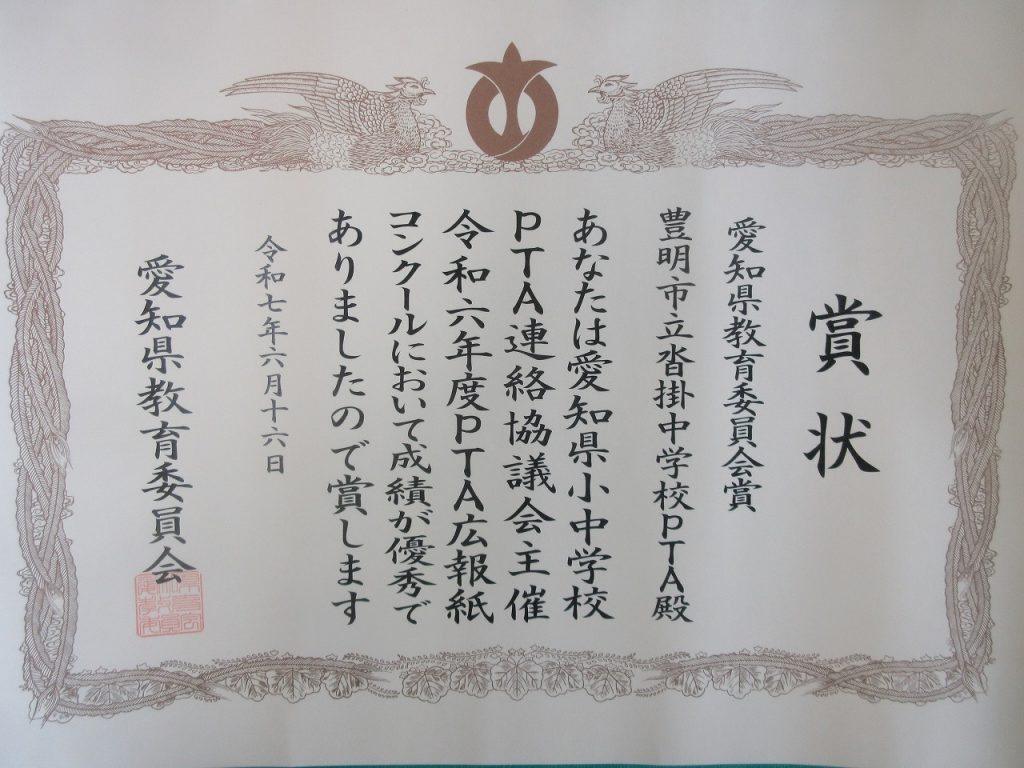 賞状
愛知県教育委員会賞
豊明市立沓掛中学校PTA殿
あなたは愛知県小中学校
PTA連絡協議会主催
令和六年度PTA広報紙
コンクールにおいて成績が優秀で
ありましたので賞します
令和七年六月十六日
愛知県教育委員会